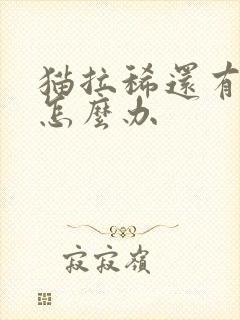 猫拉稀還有
怎麼办
寂寂嶺